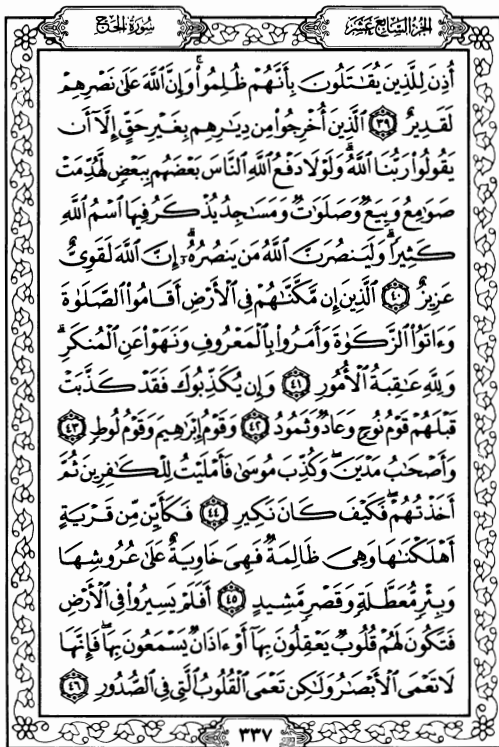 سُورَةُ الحَجِّ
الجُزْءُ السَّابِعَ عَشَرَ
أُذِنَ لِلَّذِينَ يُقَٰتَلُونَ بِأَنَّهُمْ ظُلِمُوا۟ ۚ وَإِنَّ ٱللَّهَ عَلَىٰ نَصْرِهِمْ
لَقَدِيرٌ ٣٩ ٱلَّذِينَ أُخْرِجُوا۟ مِن دِيَٰرِهِم بِغَيْرِ حَقٍّ إِلَّآ أَن
يَقُولُوا۟ رَبُّنَا ٱللَّهُ ۗ وَلَوْلَا دَفْعُ ٱللَّهِ ٱلنَّاسَ بَعْضَهُم بِبَعْضٍ لَّهُدِّمَتْ
صَوَٰمِعُ وَبِيَعٌ وَصَلَوَٰتٌ وَمَسَٰجِدُ يُذْكَرُ فِيهَا ٱسْمُ ٱللَّهِ
كَثِيرًا ۗ وَلَيَنصُرَنَّ ٱللَّهُ مَن يَنصُرُهُۥٓ ۗ إِنَّ ٱللَّهَ لَقَوِىٌّ
عَزِيزٌ ٤٠ ٱلَّذِينَ إِن مَّكَّنَّٰهُمْ فِى ٱلْأَرْضِ أَقَامُوا۟ ٱلصَّلَوٰةَ
وَءَاتَوُا۟ ٱلزَّكَوٰةَ وَأَمَرُوا۟ بِٱلْمَعْرُوفِ وَنَهَوْا۟ عَنِ ٱلْمُنكَرِ ۗ
وَلِلَّهِ عَٰقِبَةُ ٱلْأُمُورِ ٤١ وَإِن يُكَذِّبُوكَ فَقَدْ كَذَّبَتْ
قَبْلَهُمْ قَوْمُ نُوحٍ وَعَادٌ وَثَمُودُ ٤٢ وَقَوْمُ إِبْرَٰهِيمَ وَقَوْمُ لُوطٍ ٤٣
وَأَصْحَٰبُ مَدْيَنَ ۖ وَكُذِّبَ مُوسَىٰ فَأَمْلَيْتُ لِلْكَٰفِرِينَ ثُمَّ
أَخَذْتُهُمْ ۖ فَكَيْفَ كَانَ نَكِيرِ ٤٤ فَكَأَيِّن مِّن قَرْيَةٍ
أَهْلَكْنَٰهَا وَهِىَ ظَالِمَةٌ فَهِىَ خَاوِيَةٌ عَلَىٰ عُرُوشِهَا
وَبِئْرٍ مُّعَطَّلَةٍ وَقَصْرٍ مَّشِيدٍ ٤٥ أَفَلَمْ يَسِيرُوا۟ فِى ٱلْأَرْضِ
فَتَكُونَ لَهُمْ قُلُوبٌ يَعْقِلُونَ بِهَآ أَوْ ءَاذَانٌ يَسْمَعُونَ بِهَا ۖ فَإِنَّهَا
لَا تَعْمَى ٱلْأَبْصَٰرُ وَلَٰكِن تَعْمَى ٱلْقُلُوبُ ٱلَّتِى فِى ٱلصُّدُورِ ٤٦
٣٣٧